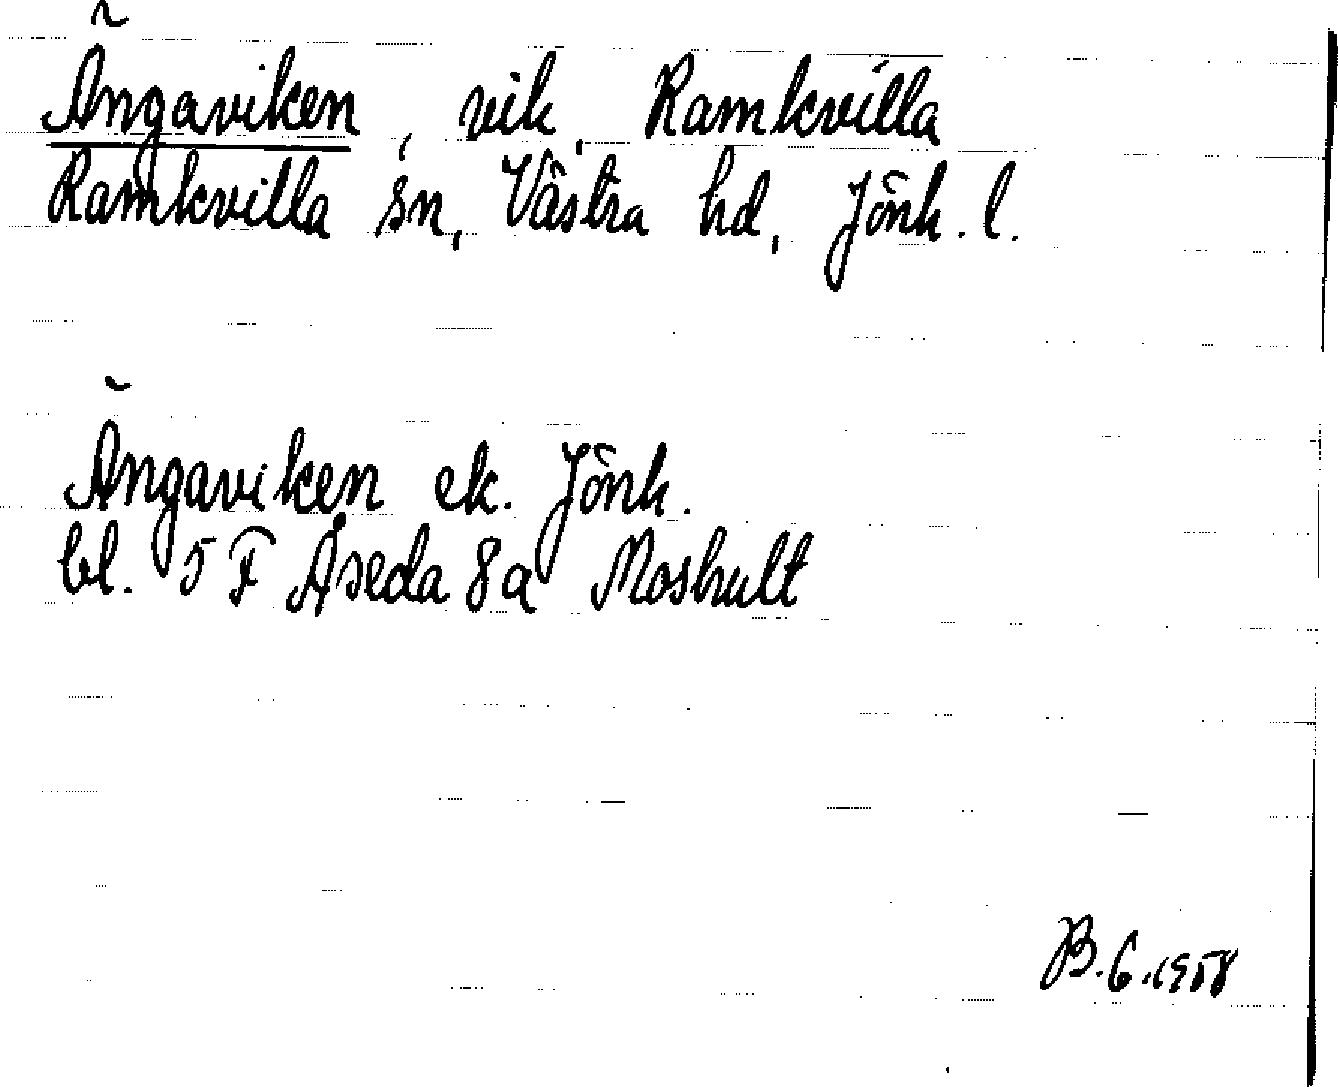 Ängaviken, vik, Ramkvilla
Ramkvilla sn, Västra hd, Jönk. l.
Ängaviken ek. Jönk.
bl. 5 F Åseda 8a Moshult
B.G.1958